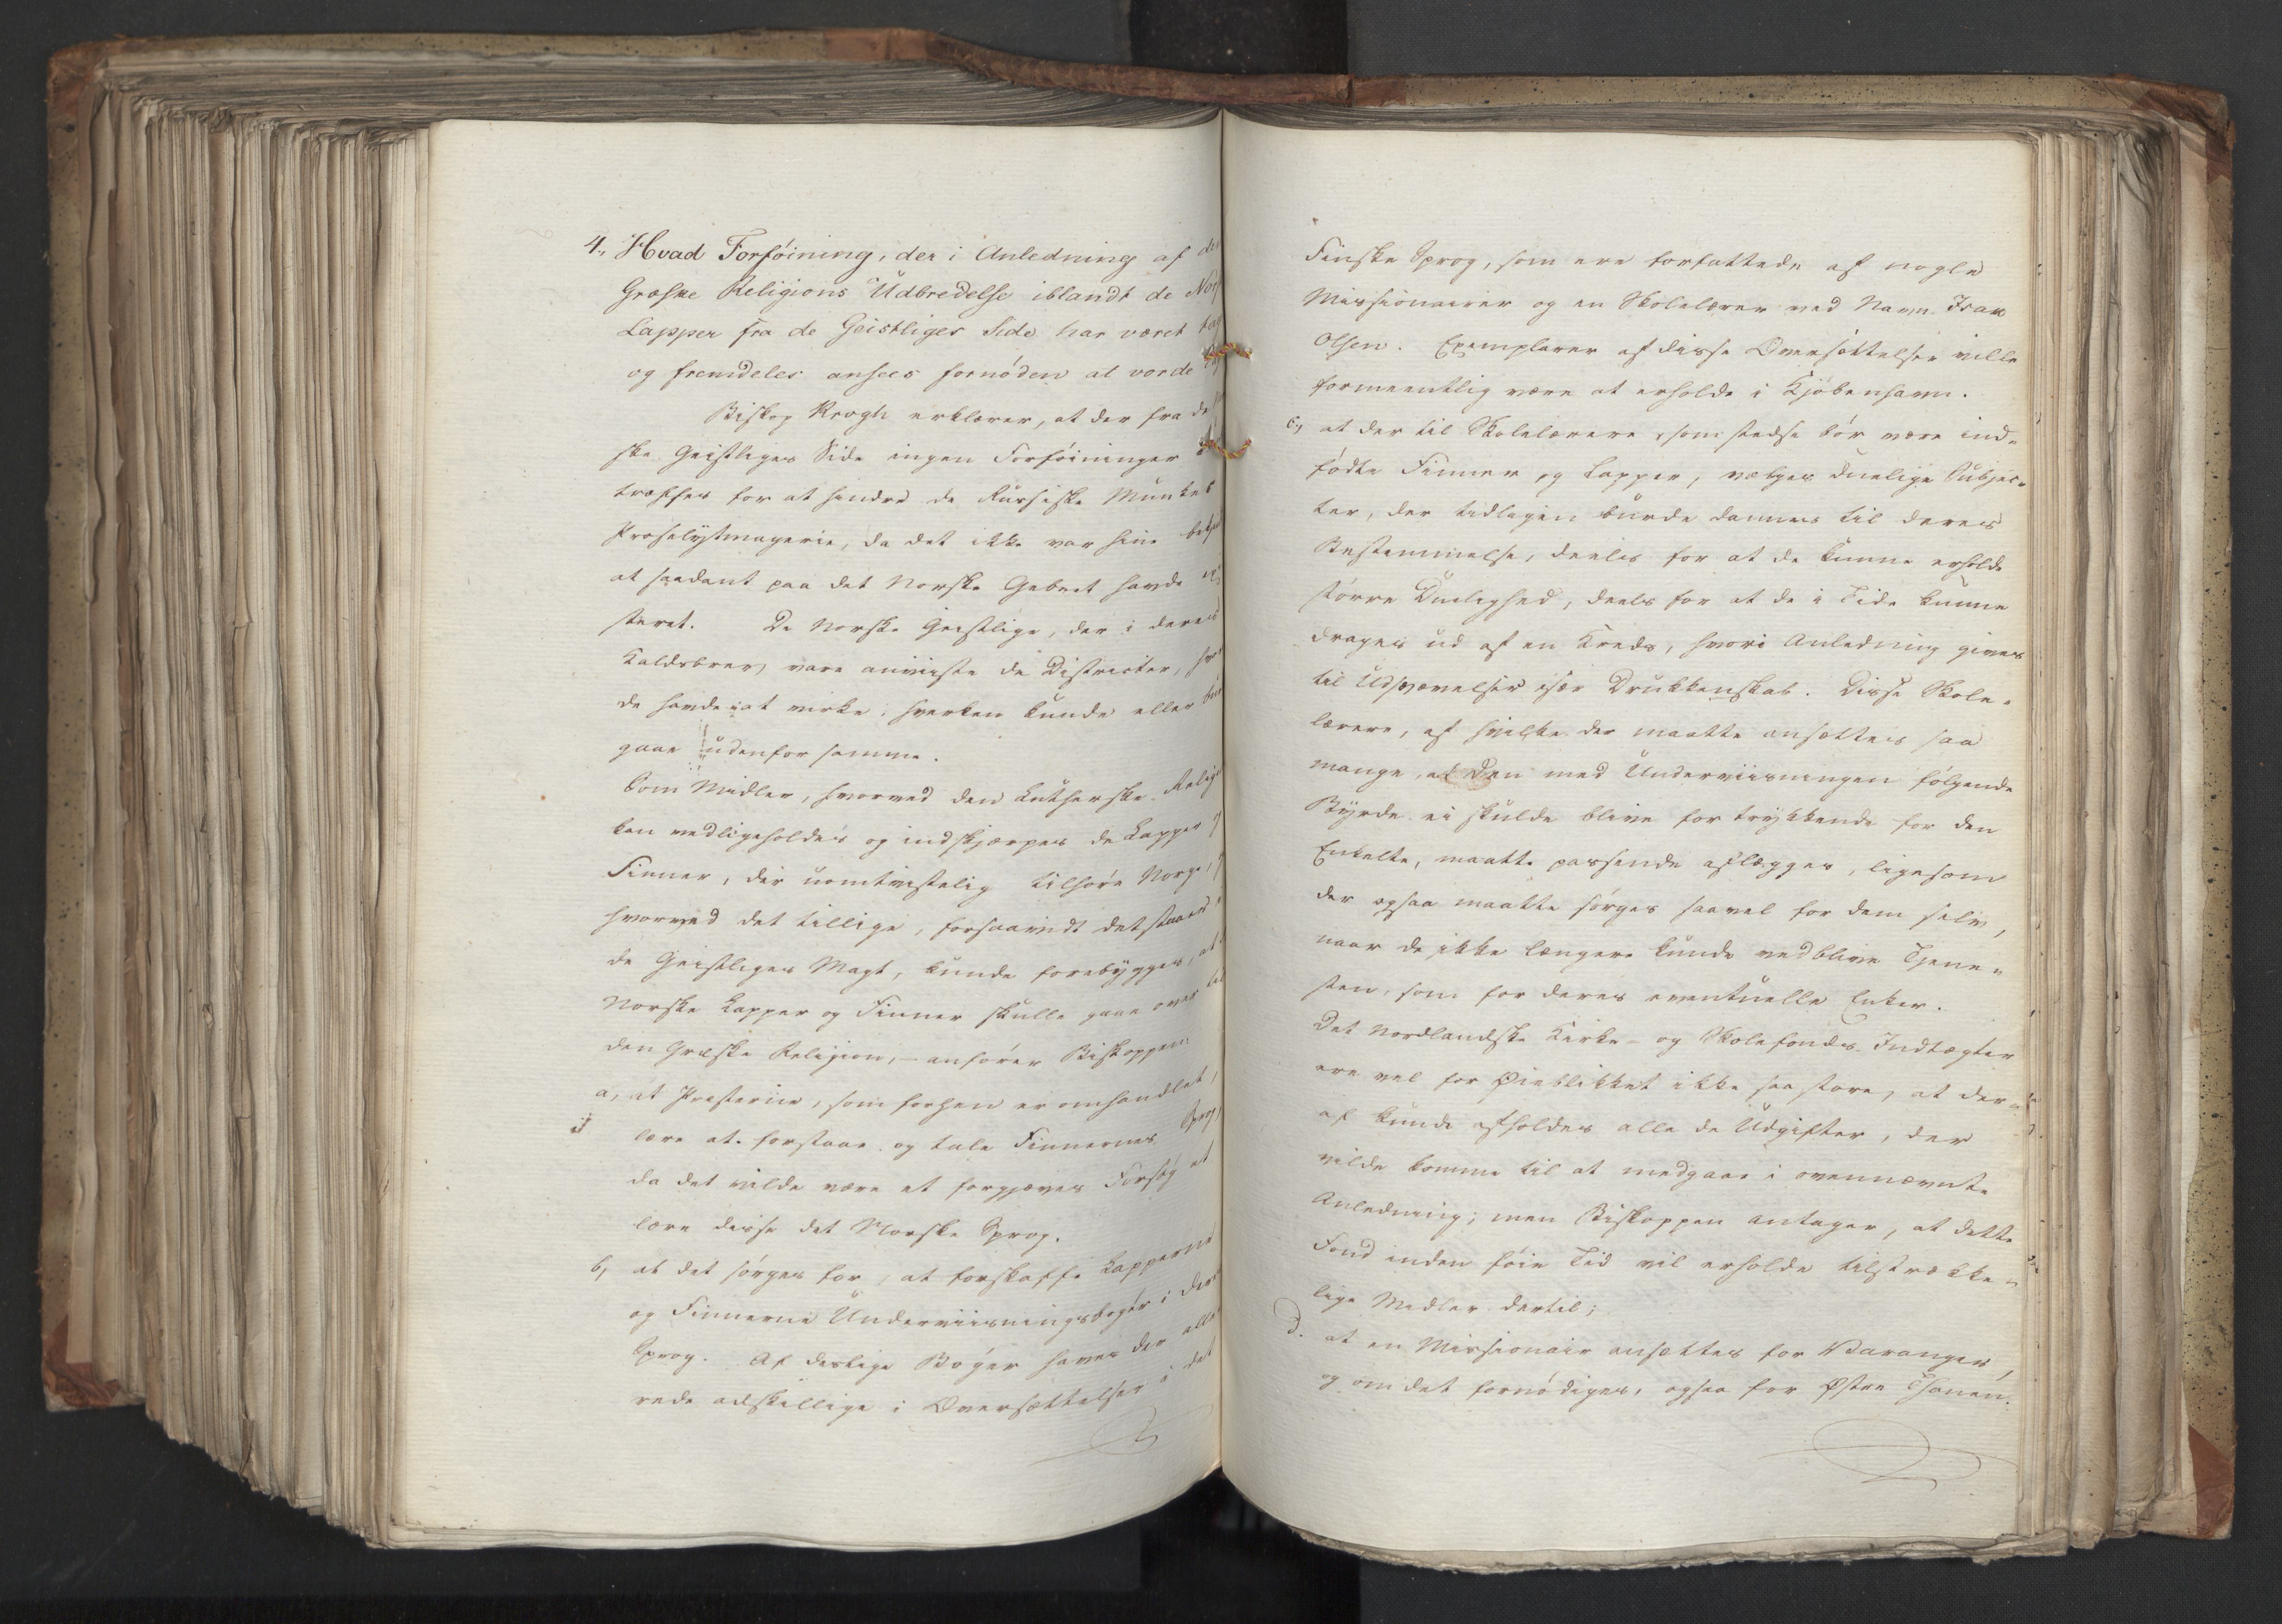 4., Hvad Forföining, der i Anledning af den
Græske Religions Udbredelse iblandt de
Lapper fra de Geistliges Side har været
og fremdeles ansees fornöden at vorde
Biskop Krogh erklærer, at der fra
ske Geistliges Side ingen Forföininger
træffes for at hindre de Russiske Munkes
Proselytmagerie, da det ikke var hine
at saadant paa det Norske Gebeet havde
steret. De Norske Geistlige, der i deres
Kaldsbrev vare anviiste de Districter,
de havde at virke i hverken kunde eller
gaae udenfor samme.
Som Midler, hvorved den Lutherske
kan vedligeholdes og indskjærpes de Lapper
Finner, der uomtvistelig tilhöre Norge,
hvorved det tillige, forsaavidt det staaer i
de Geistliges Magt, kunde forebygges, at
Norske Lapper og Finner skulle gaae over til
den Græske Religion, - anförer Biskoppen:
a, at Præsterne, som forhen er omhandlet,
lære at forstaae og tale Finnernes Sprog,
da det vilde være et forgjæves Forsög at
lære disse det Norske Sprog.
b, at det sörges for, at forskaffe Lapperne
og Finnerne Underviisningsböger i deres
Sprog. Af deslige Böger haves der alle
rede adskillige i Oversættelser i det
Finske Sprog, som ere forfattede af nogle
Missionairer og en Skolelærer ved Navn Isac
Olsen. Exemplarer af disse Oversættelser ville
formeentlig være at erholde i Kjöbenhavn.
c, at der til Skolelærere, som stedse bör være ind-
födte Finner og Lapper, vælges duelige Subjec-
ter, der tidligen burde dannes til deres
Bestemmelse, deels for at de kunne erholde
större Duelighed, deels for at de i Tide kunne
drages ud af en Kreds, hvori Anledning gives
til Udsvævelser især Drukkenskab. Disse Skole-
lærere, af hvilke der maatte ansættes saa
mange, at den med Underviisningen fölgende
Byrde ei skulde blive for trykkende for den
Enkelte, maatte passende aflægges, ligesom
der ogsaa maatte sörges saavel for dem selv,
naar de ikke længere kunde vedblive Tjene-
sten, som for deres eventuelle Enker.
Det Nordlandske Kirke- og Skolefonds Indtægter
ere vel for Øieblikket ikke saa store, at der-
af kunde afholdes alle de Udgifter, der
vilde komme til at medgaae i ovennævnte
Anledning; men Biskoppen antager, at dette
Fond inden föie Tid vil erholde tilstrække-
lige Midler dertil;
d. at en Missionair ansættes for Waranger,
og om det fornödiges, ogsaa for Østre Tanen.